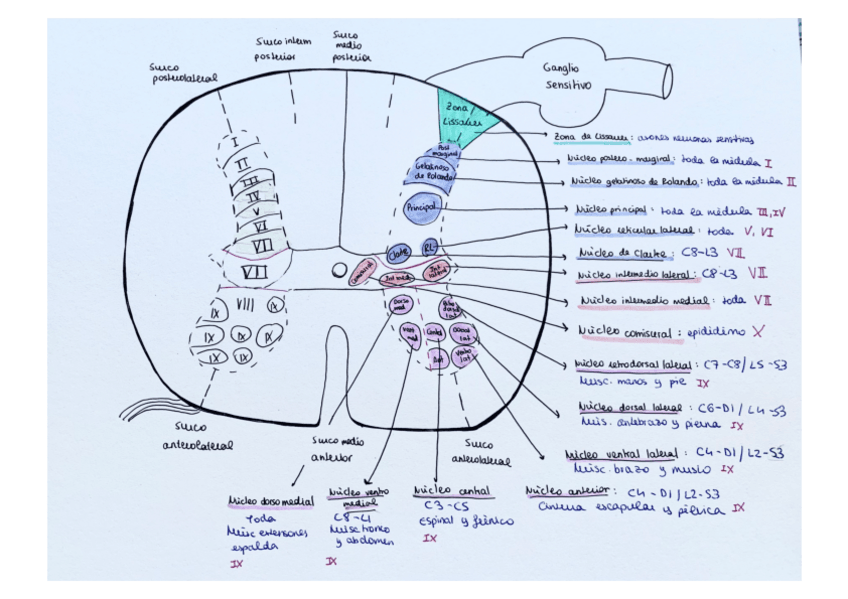 Surco
posterolateral
Surco interm
posterior
Surco
medio
posterior
Ganglio
sensitivo
Zona
Lissauer
Post
marginal
Gelatinoso
de Rolando
Principal
Clarke
RL
Comisural
Int med
Int
lateral
Dorso
med
Retro
dorsal
lat
Vent
med
Central
Dorsal
lat
Ant
Ventro
lat
I
II
III
IV
V
VI
VII
VII
VIII
IX
IX
IX
IX
IX
IX
IX
Zona de Lissauer: axones neuronas sensitivas
Núcleo postero-marginal: toda la médula I
Núcleo gelatinoso de Rolando: toda la médula II
Núcleo principal: toda la médula III, IV
Núcleo reticular lateral: toda V, VI
Núcleo de Clarke: C8-L3 VII
Núcleo intermedio lateral: C8-L3 VII
Núcleo intermedio medial: toda VII
Núcleo comisural: epidídimo X
Núcleo retrodorsal lateral: C7-C8/L5-S3
Musc. manos y pie IX
Núcleo dorsal lateral: C6-D1/L4-S3
Mus. antebrazo y pierna IX
Núcleo ventral lateral: C4-D1/L2-S3
Musc. brazo y muslo IX
Núcleo anterior: C4-D1/L2-S3
Cintura escapular y pélvica IX
Surco
anterolateral
Surco medio
anterior
Surco
anterolateral
Núcleo dorsomedial
Toda
Musc extensores
espalda
IX
Núcleo ventro
medial
C8-L1
Musc tronco
y abdomen
IX
Núcleo central
C3-C5
Espinal y frénico
IX